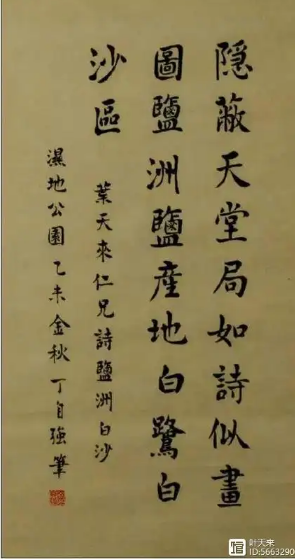 隱蔽天堂局如詩似畫
圖鹽洲鹽産地白鷺白
沙區
葉天來仁兄詩鹽洲白沙
濕地公園乙未金秋丁自强筆
叶天来
ID:5663290